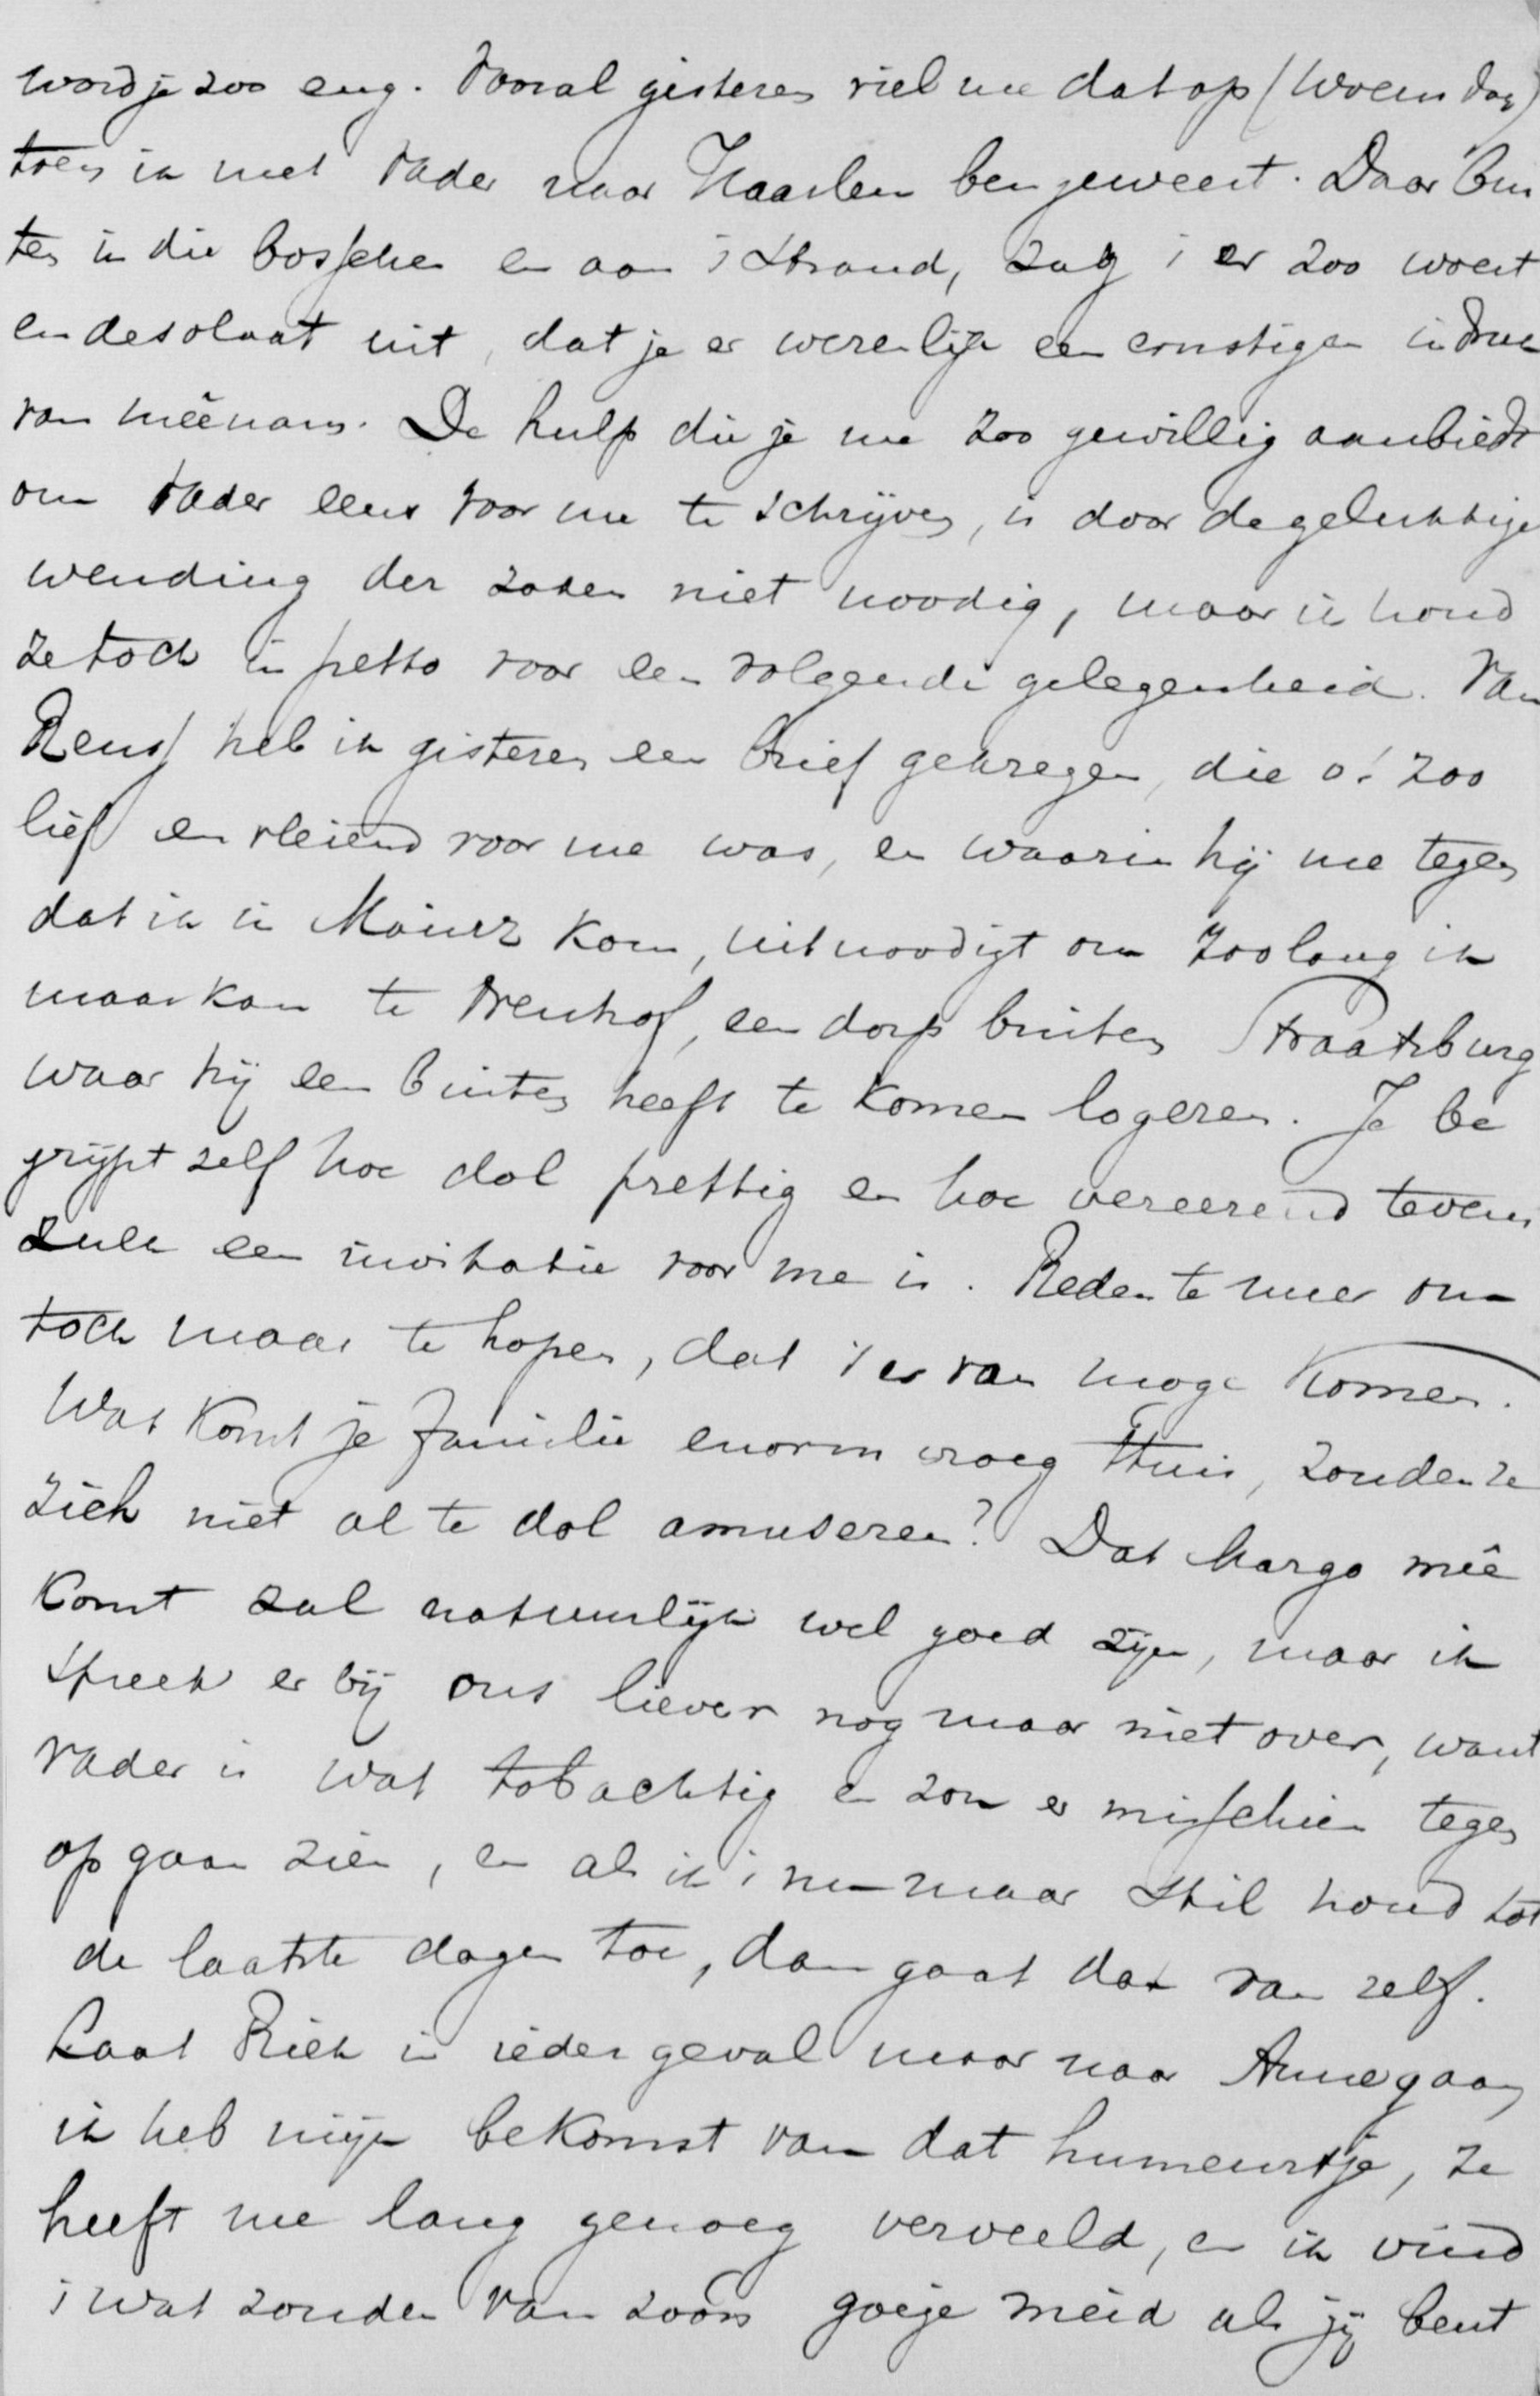 word je zoo eng. Vooral gisteren viel me dat op (Woensdag)
toen ik met Vader naar Haarlem ben geweest. Daar bui
ten in die bosschen en aan 't strand, zag 't er zoo woest
en desolaat uit, dat je er werkelijk een ernstigen indruk
van meênam. De hulp die je me zoo gewillig aanbiedt
om Vader eens voor me te schrijven, is door de gelukkige
wending der zaken niet noodig, maar ik houd
ze toch in petto voor een volgende gelegenheid. Van
heb ik gisteren een brief gekregen, die o! zoo
lief en vleiend voor me was, en waarin hij me tegen
dat ik in Mainz kom, uitnoodigt om zoolang ik
maar kan te een dorp buiten Straatsburg
waar hij een buiten heeft te komen logeren. Je be
grijpt zelf hoe dol prettig en hoe vereerend tevens
zulk een invitatie voor me is. Reden te meer om
toch maar te hopen, dat 't er van moge komen.
Wat komt je familie enorm vroeg thuis, zouden ze
zich niet al te dol amuseren? Dat Margo meê
komt zal natuurlijk wel goed zijn, maar ik
spreek er bij ons liever nog maar niet over, want
Vader is wat tobachtig en zou er misschien tegen
op gaan zien, en als ik 't nu maar stil houd tot
de laatste dagen toe, dan gaat dat van zelf.
Laat Riek in ieder geval maar naar gaan,
ik heb mijn bekomst van dat humeurtje, ze
heeft me lang genoeg verveeld, en ik vind
't wat zonde van zoo'n goeje meid als jij bent